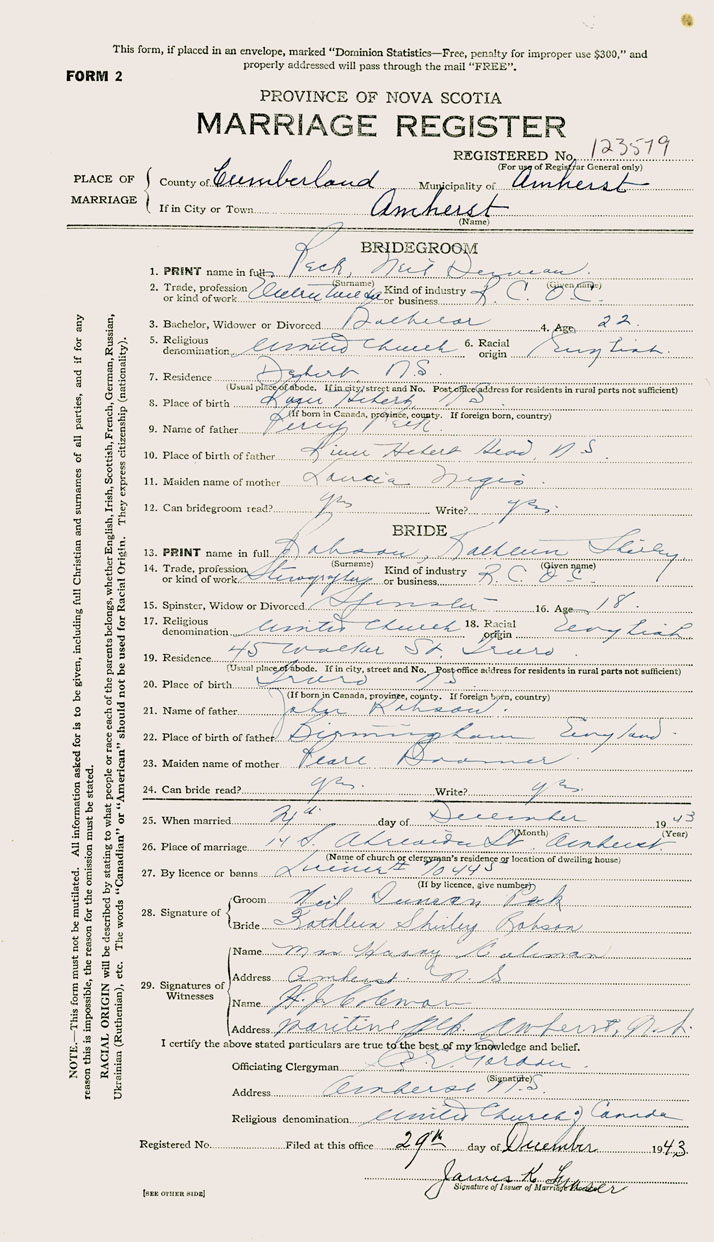 This form, if placed in an envelope, marked "Dominion Statistics—Free, penalty for improper use $300," and
properly addressed will pass through the mail "FREE".
FORM 2
PROVINCE OF NOVA SCOTIA
MARRIAGE REGISTER
REGISTERED No. 123579
(For use of Registrar General only)
PLACE OF MARRIAGE
County of Cumberland Municipality of Amherst
If in City or Town Amherst
(Name)
BRIDEGROOM
1. PRINT name in full Peck, Neil Duncan
(Surname) (Given name)
2. Trade, profession or kind of work Kind of industry or business R. C. O. C.
3. Bachelor, Widower or Divorced Bachelor 4. Age 22
5. Religious denomination United Church 6. Racial origin English
7. Residence Debert N.S.
(Usual place of abode. If in city/street and No. Post office address for residents in rural parts not sufficient)
8. Place of birth Hebert, N.S.
(If born in Canada, province, county. If foreign born, country)
9. Name of father Percy Peck
10. Place of birth of father River Hebert Head, N.S.
11. Maiden name of mother
12. Can bridegroom read? yes Write? yes
BRIDE
13. PRINT name in full Robson, Kathleen Shirley
(Surname) (Given name)
14. Trade, profession or kind of work Stenographer Kind of industry or business R. C. O. C.
15. Spinster, Widow or Divorced Spinster 16. Age 18
17. Religious denomination United Church 18. Racial origin English
19. Residence 45 Walker St. Truro
(Usual place of abode. If in city, street and No. Post office address for residents in rural parts not sufficient)
20. Place of birth Truro N.S.
(If born in Canada, province, county. If foreign born, country)
21. Name of father John Robson
22. Place of birth of father Birmingham England
23. Maiden name of mother Pearl
24. Can bride read? yes Write? yes
25. When married day of December 1943
(Month) (Year)
26. Place of marriage 14 S. St. Amherst
(Name of church or clergyman's residence or location of dwelling house)
27. By licence or banns Licence # 70443
(If by licence, give number)
28. Signature of
Groom Neil Duncan Peck
Bride Kathleen Shirley Robson
29. Signatures of Witnesses
Name Mrs Harry Coleman
Address Amherst N.S
Name H. J. Coleman
Address Maritime Amherst, N.S.
I certify the above stated particulars are true to the best of my knowledge and belief.
Officiating Clergyman Gordon
(Signature)
Address Amherst N.S.
Religious denomination United Church of Canada
Registered No. Filed at this office 29th day of December 1943
James K Fraser
Signature of Issuer of Marriage
[SEE OTHER SIDE]
NOTE.—This form must not be mutilated. All information asked for is to be given, including full Christian and surnames of all parties, and if for any
reason this is impossible, the reason for the omission must be stated.
RACIAL ORIGIN will be described by stating to what people or race each of the parents belongs, whether English, Irish, Scottish, French, German, Russian,
Ukrainian (Ruthenian), etc. The words "Canadian" or "American" should not be used for Racial Origin. They express citizenship (nationality).